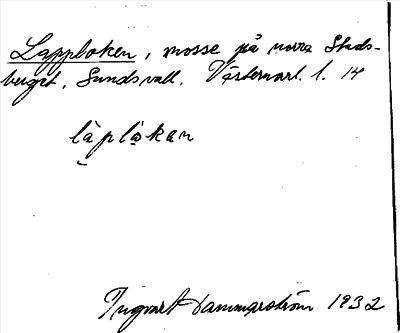 Lapploken, mosse på norra Stads-
berget, Sundsvall. Västernorrl. l. 14
làplòkan
Ingvart Hammarström 1932